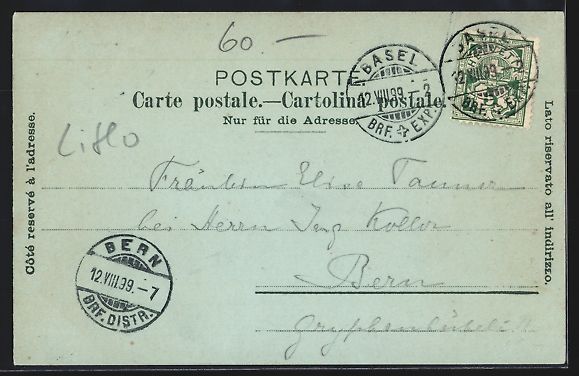 60.—
POSTKARTE.
Carte postale.—Cartolina postale.
Nur für die Adresse.
BASEL
12.VIII.99.–2
BRF. EXP.
BASEL
HELVETIA
12.VIII.99.
BRF. EXP.
Litho
Côté reservé à l'adresse.
Lato riservato all' indirizzo.
Fräulein Elise
bei Herrn Ing. Koller
Bern
BERN
12.VIII.99.–7
BRF. DISTR.